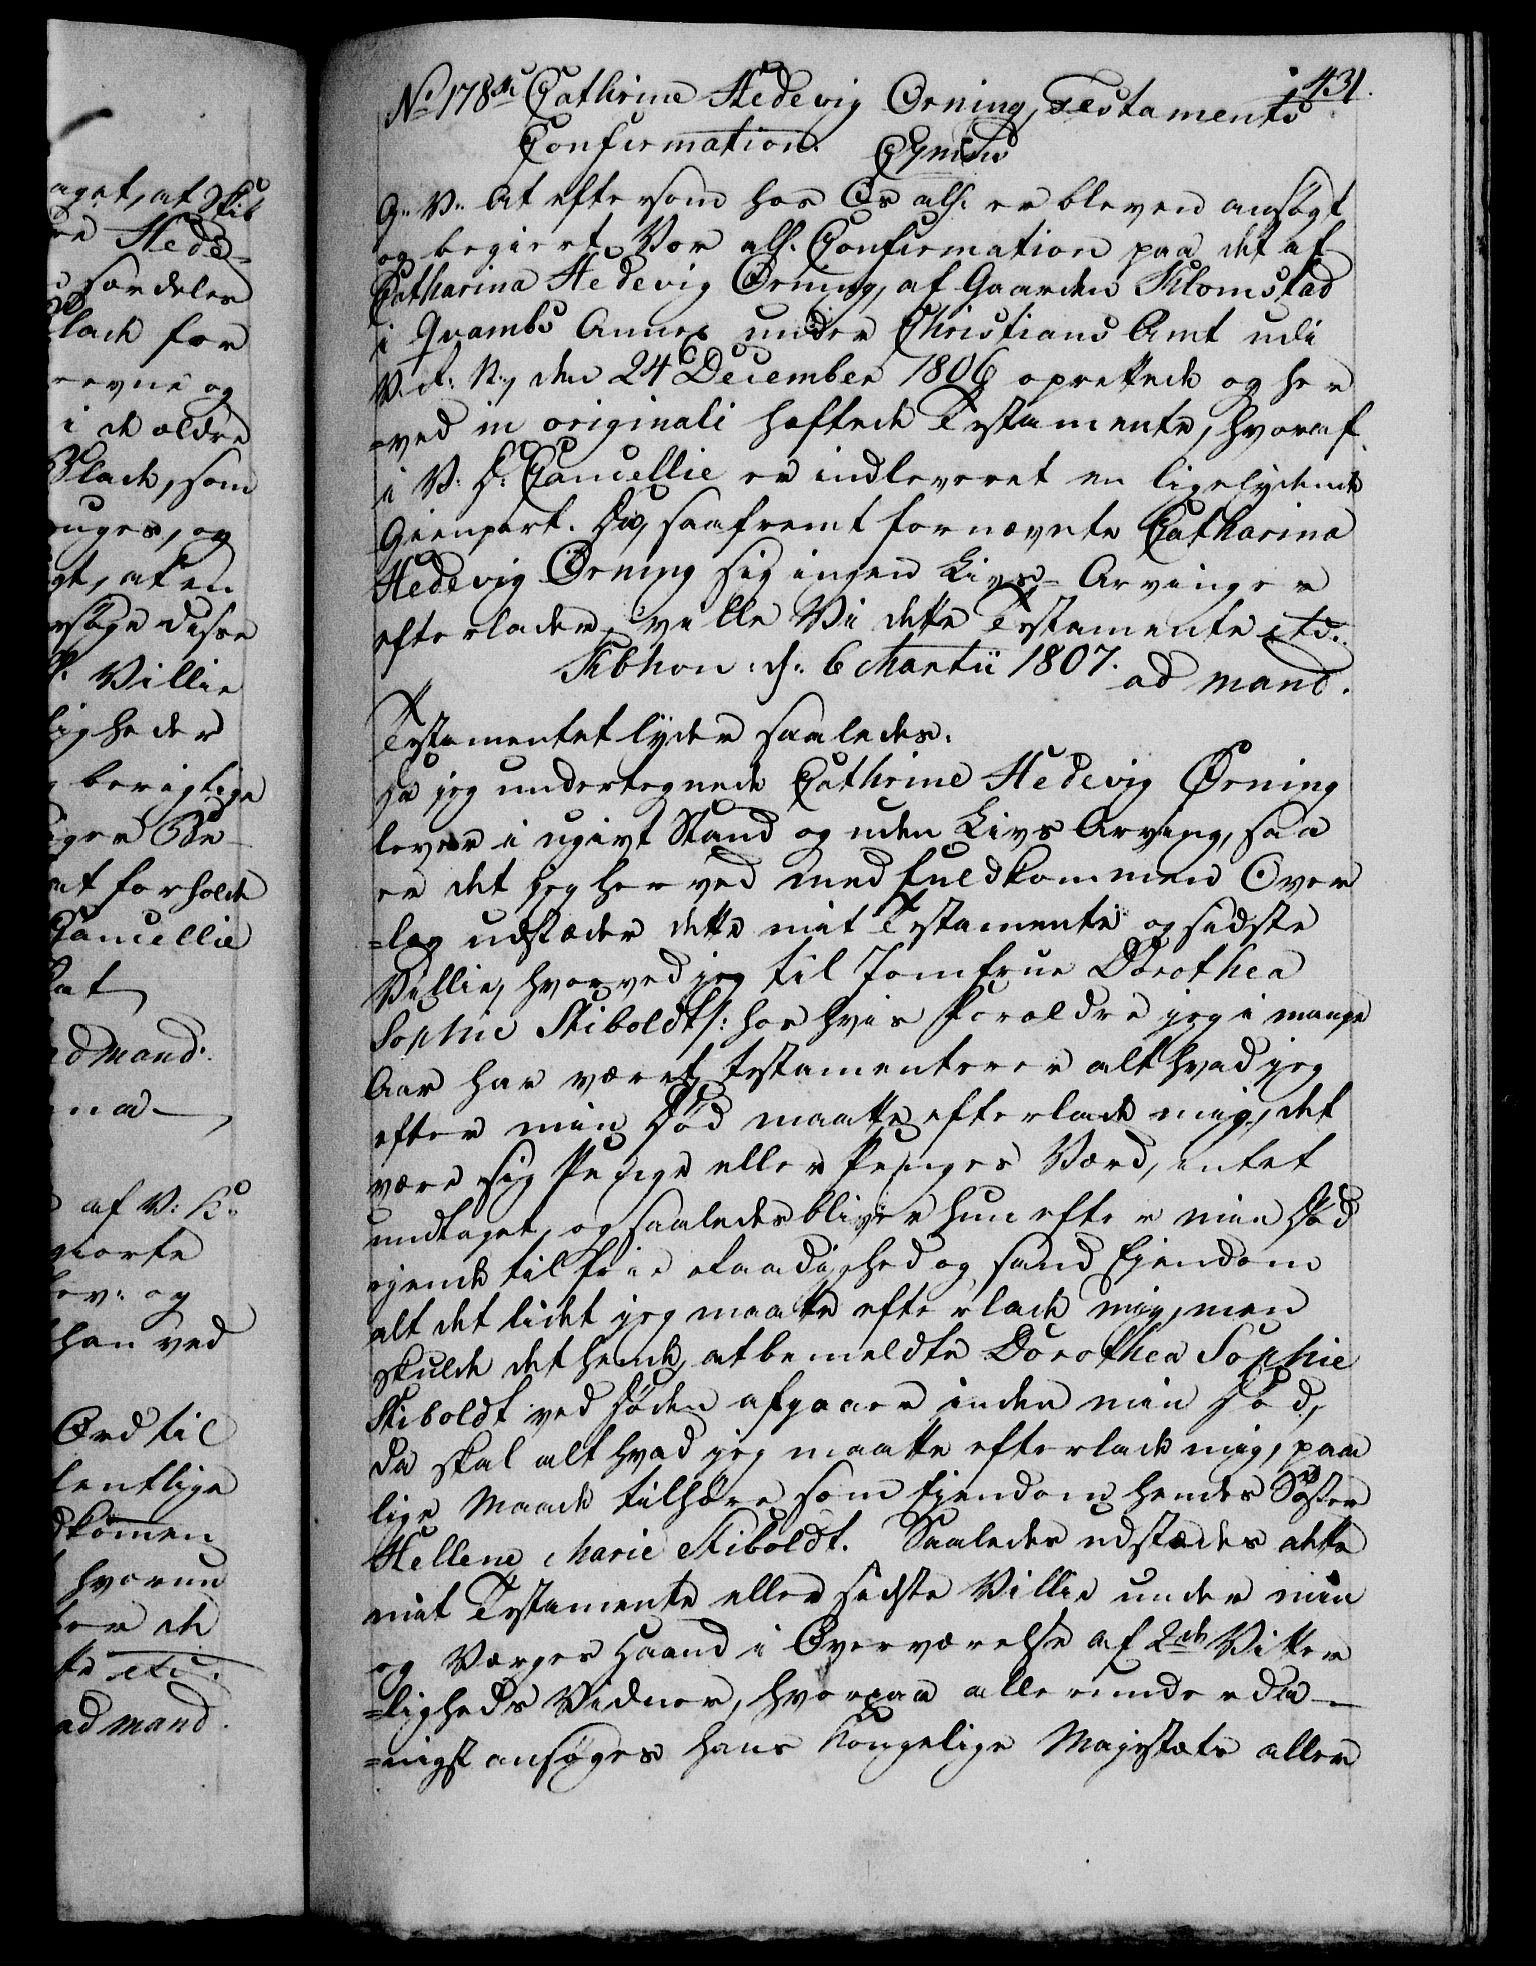 431.
No 178 Cathrine Hedevig Örning, Testaments
Confirmation.
G: V: At eftersom hos Os all: er bleven ansögt
og begiert Vor all: Confirmation paa det af
Catharina Hedevig Örning, af Gaarden Klomstad
i Quambs Annex under Christians Amt udi
V. R: N:, den 24 December 1806 oprettede og her
=ved in originali hæftede Testamente, hvoraf
i V: D: Cancellie er indleveret en ligelydende
Gienpart. Da, saafremt fornævnte Catharina
Hedevig Örning sig ingen Livs-Arvinger
efterlader, ville Vi dette Testamente etc:
Kbhvn: d: 6 Martii 1807. ad mand.
Testamentet lyder saaledes.
Da jeg undertegnede Cathrine Hedevig Örning
lever i ugivt Stand og uden Livs Arving, saa
er det jeg herved med fuldkommen Over
=læg udstæder dette mit Testamente og sidste
Villie, hvorved jeg til Jomfrue Dorothea
Sophie Stiboldt /: hos hvis Forældre jeg i mange
Aar har været, testamenterer alt hvad jeg
efter min Död maatte efterlade mig, det
være sig Penge eller Penges Værd, intet
undtaget, og saaledes bliver hun efter min Död
ejende til frie Raadighed og sand Ejendom
alt det lidet jeg maatte efterlade mig, men
skulde det hende, at bemeldte Dorothea Sophie
Stiboldt ved Döden afgaaer inden min Död,
da skal alt hvad jeg maatte efterlade mig, paa
lige Maade tilhöre som Ejendom hendes Söster
Hellene Marie Stiboldt. Saaledes udstædes dette
mit Testamente eller sidste Villie under min
og Værges Haand i Overværelse af 2de Vitter
=ligheds Vidner, hvorpaa allerunderda-
=nigst ansöges Hans Kongelige Majestæts aller